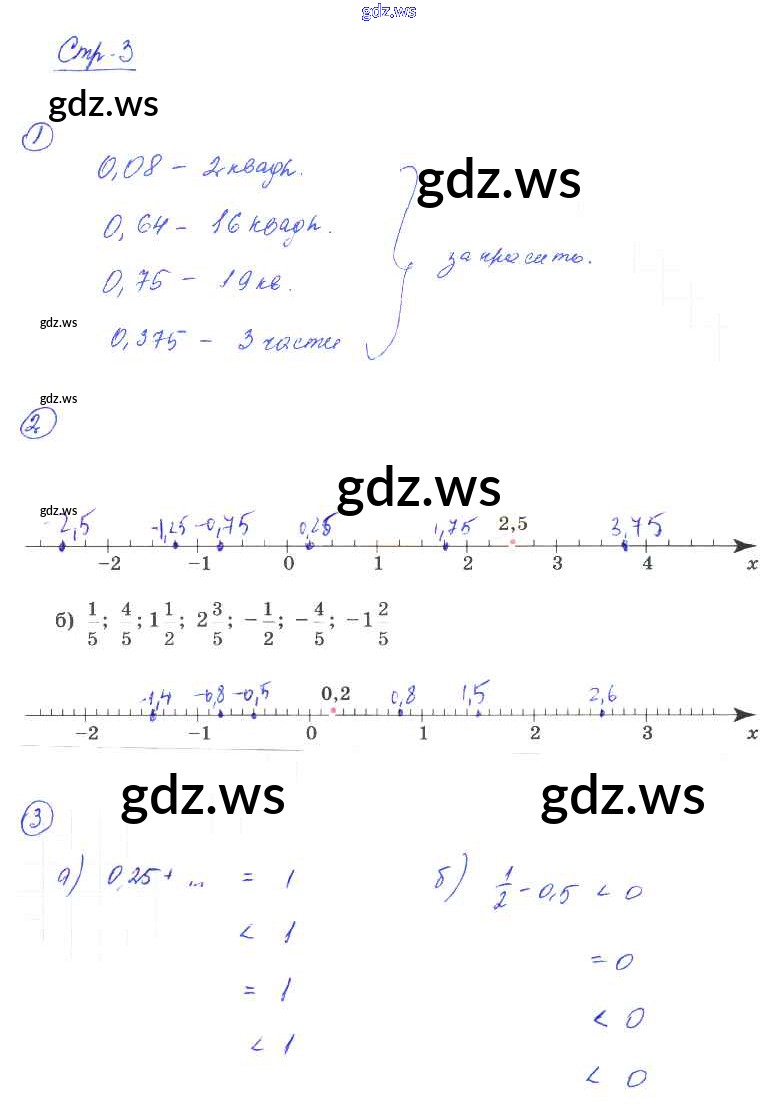 gdz.ws
Стр. 3
gdz.ws
1
0,08 – 2 квадр.
gdz.ws
0,64 – 16 квадр.
закрасить.
0,75 – 19 кв.
gdz.ws
0,375 – 3 части
gdz.ws
2
gdz.ws
gdz.ws
-2,5 -1,25 -0,75 0,25 1,75 2,5 3,75
−2 −1 0 1 2 3 4 x
б) 1/5; 4/5; 1 1/2; 2 3/5; −1/2; −4/5; −1 2/5
-1,4 -0,8 -0,5 0,2 0,8 1,5 2,6
−2 −1 0 1 2 3 x
gdz.ws gdz.ws
3
а) 0,25 + ... = 1
< 1
= 1
< 1
б) 1/2 - 0,5 < 0
= 0
< 0
< 0